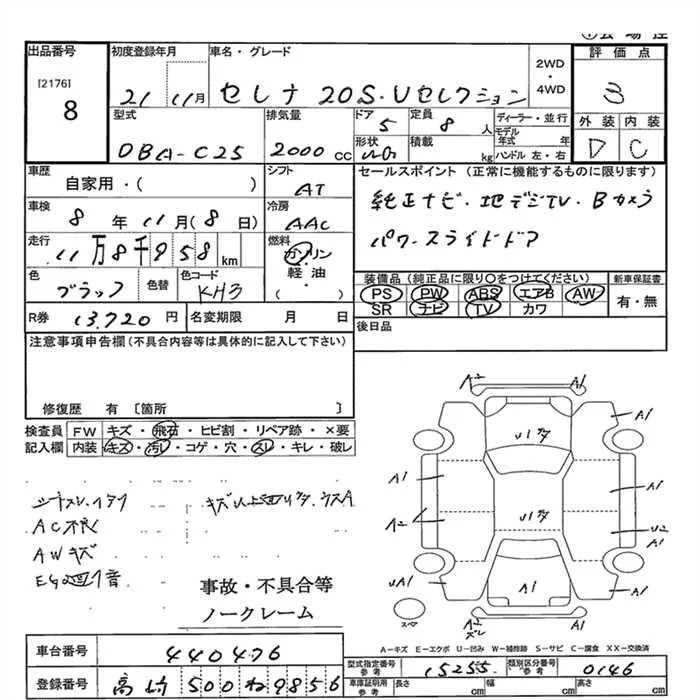 出品番号
[2176]
8
初度登録年月
21 11月
車名・グレード
セレナ 20S・Vセレクション
2WD・4WD
評価点
3
外装 内装
D C
型式
DBA-C25
排気量
2000 cc
ドア
5
形状
定員
8 人
積載
kg
ディーラー・並行
モデル年式 年
ハンドル 左・右
車歴
自家用・( )
シフト
AT
車検
8 年 11月(8 日)
冷房
AAC
走行
11万8千958 km
燃料
ガソリン
軽油・
( )
色
ブラック
色替
色コード
KH3
R券
13,720 円
名変期限 月 日
セールスポイント(正常に機能するものに限ります)
純正ナビ・地デジTV・Bカメラ
パワースライドドア
装備品(純正品に限り○をつけてください)
PS PW ABS エアB AW
SR ナビ TV カワ
新車保証書
有・無
後日品
注意事項申告欄(不具合内容等は具体的に記入して下さい)
修復歴 有 〔箇所 〕
検査員記入欄
FW キズ・飛石・ヒビ割・リペア跡・×要
内装 キズ・汚レ・コゲ・穴・スレ・キレ・破レ
AC不良
AWキズ
事故・不具合等
ノークレーム
A2 A1
A1
U1 A1
A1 A1
A2 U1 U2 A1
UA1 A1 A1
スペア
A2 A1
ズレ
A-キズ E-エクボ U-凹み W-補修跡 S-サビ C-腐食 XX-交換済
車台番号
440476
登録番号
高崎 500 ね 9856
型式指定番号 参考
15255
類別区分番号 参考
0146
車庫証明用 参考 長さ cm 幅 cm 高さ cm